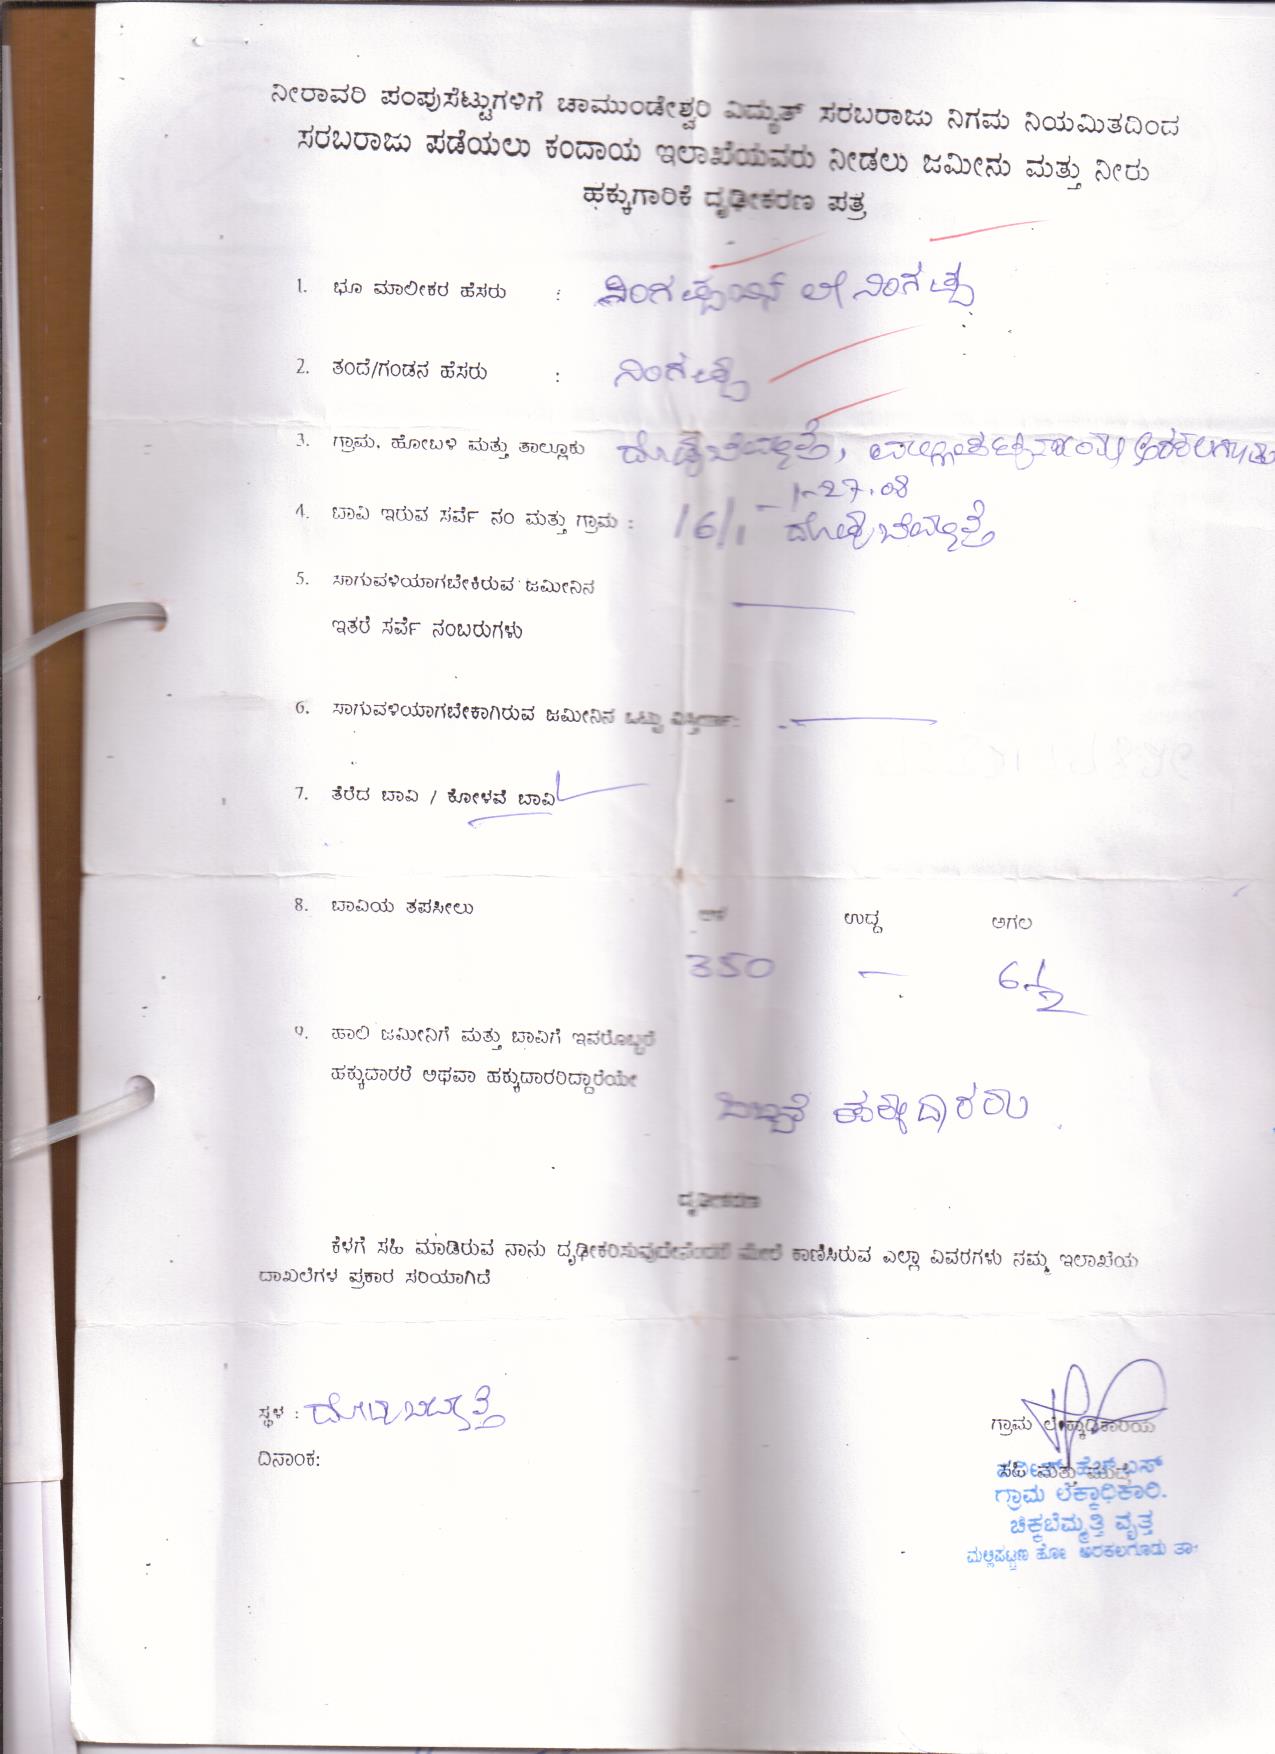 ನೀರಾವರಿ ಪಂಪುಸೆಟ್ಟುಗಳಿಗೆ ಚಾಮುಂಡೇಶ್ವರಿ ವಿದ್ಯುತ್ ಸರಬರಾಜು ನಿಗಮ ನಿಯಮಿತದಿಂದ
ಸರಬರಾಜು ಪಡೆಯಲು ಕಂದಾಯ ಇಲಾಖೆಯವರು ನೀಡಲು ಜಮೀನು ಮತ್ತು ನೀರು
ಹಕ್ಕುಗಾರಿಕೆ ದೃಢೀಕರಣ ಪತ್ರ
1. ಭೂ ಮಾಲೀಕರ ಹೆಸರು :
2. ತಂದೆ/ಗಂಡನ ಹೆಸರು : ನಿಂಗಪ್ಪ
3. ಗ್ರಾಮ, ಹೋಬಳಿ ಮತ್ತು ತಾಲ್ಲೂಕು
1-27.08
4. ಬಾವಿ ಇರುವ ಸರ್ವೆ ನಂ ಮತ್ತು ಗ್ರಾಮ : 16/1
5. ಸಾಗುವಳಿಯಾಗಬೇಕಿರುವ ಜಮೀನಿನ
ಇತರೆ ಸರ್ವೆ ನಂಬರುಗಳು
6. ಸಾಗುವಳಿಯಾಗಬೇಕಾಗಿರುವ ಜಮೀನಿನ ಒಟ್ಟು ವಿಸ್ತೀರ್ಣ:
7. ತೆರೆದ ಬಾವಿ / ಕೋಳವೆ ಬಾವಿ
8. ಬಾವಿಯ ತಪಸೀಲು ಆಳ ಉದ್ದ ಅಗಲ
350 — 6½
9. ಹಾಲಿ ಜಮೀನಿಗೆ ಮತ್ತು ಬಾವಿಗೆ ಇವರೊಬ್ಬರೆ
ಹಕ್ಕುದಾರರೆ ಅಥವಾ ಹಕ್ಕುದಾರರಿದ್ದಾರೆಯೇ
ದೃಢೀಕರಣ
ಕೆಳಗೆ ಸಹಿ ಮಾಡಿರುವ ನಾನು ದೃಢೀಕರಿಸುವುದೇನೆಂದರೆ ಮೇಲೆ ಕಾಣಿಸಿರುವ ಎಲ್ಲಾ ವಿವರಗಳು ನಮ್ಮ ಇಲಾಖೆಯ
ದಾಖಲೆಗಳ ಪ್ರಕಾರ ಸರಿಯಾಗಿದೆ
ಸ್ಥಳ :
ಗ್ರಾಮ ಲೆಕ್ಕಾಧಿಕಾರಿಯ
ದಿನಾಂಕ:
ಸಹಿ ಮತ್ತು ಮುದ್ರೆ
ಗ್ರಾಮ ಲೆಕ್ಕಾಧಿಕಾರಿ.
ಚಿಕ್ಕಬೆಮ್ಮತ್ತಿ ವೃತ್ತ
ಮಲ್ಲಿಪಟ್ಟಣ ಹೋ ಅರಕಲಗೂಡು ತಾ॥